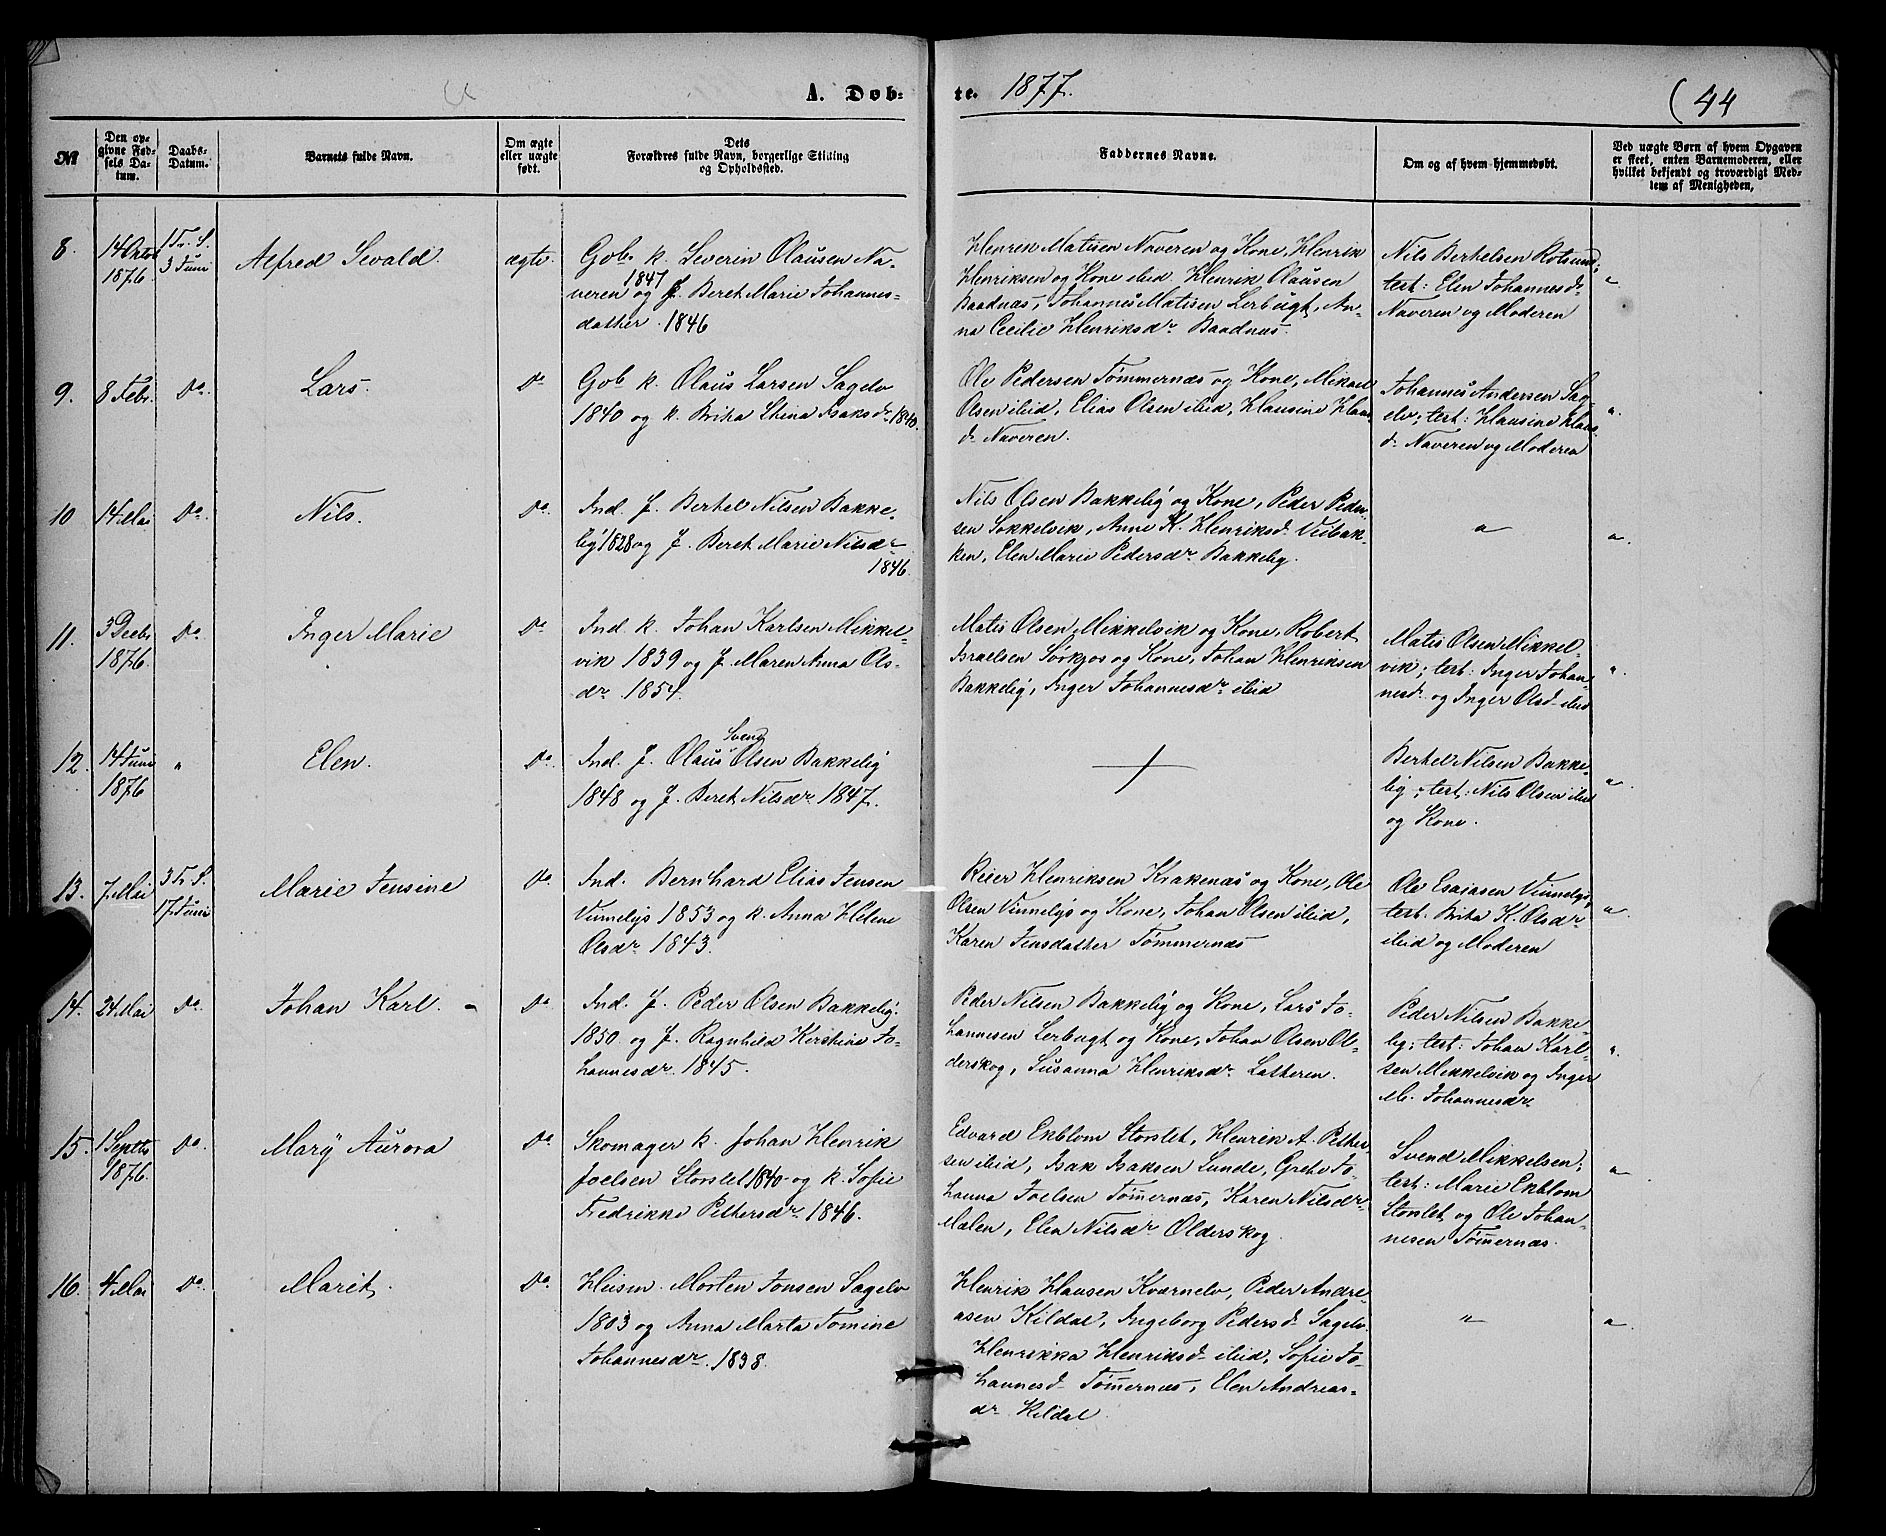 A. Døb- te. 1877. (44
№
Den opgivne Fødsels Datum.
Daabs-Datum.
Barnets fulde Navn.
Om ægte eller uægte født.
Dets Forældres fulde Navn, borgerlige Stilling og Opholdssted.
Faddernes Navne.
Om og af hvem hjemmedøbt.
Ved uægte Børn af hvem Opgaven er skeet, enten Barnemoderen, eller hvilket bekjendt og troværdigt Medlem af Menigheden,
8.
14 Octob
1876.
1 Tr. S.
3 Juni
Alfred Sevald.
ægte.
Gob. k. Severin Olausen Na-
veren 1847 og J. Beret Marie Johannes-
datter. 1846
Henrik Matisen Naveren og Kone, Henrik
Henriksen og Kone ibid, Henrik Olausen
Baadnæs, Johannes Matisen Lerbugt, An-
na Cecilie Henriksdr. Baadnæs.
Nils Berthelsen Rotsund;
test: Elen Johannesd.
Naveren og Moderen
"
9.
8 Febr.
Do.
Lars.
Do
Gob k. Olaus Larsen Sagelv
1840 og k. Brita Stina Isaksdr. 1840.
Ole Pedersen Tømmernæs og Kone, Mikael
Olsen ibid, Elias Olsen ibid, Hansine Hans
d. Naveren.
Johannes Andersen Sag-
elv; test: Hansine Hans-
d. Naveren og Moderen
".
10
14 Mai
Do.
Nils.
Do.
Ind. J. Berthel Nilsen Bakke-
lig 1828 og J. Beret Marie Nilsdr
1846
Nils Olsen Bakkelig og Kone, Peder Peder-
sen Sokkelvik, Anne K. Henriksd. Veibak-
ken, Elen Marie Pedersdr. Bakkelig.
"
".
11.
3 Decbr
1876.
Do.
Inger Marie
Do
Ind. k. Johan Karlsen Mikkel-
vik 1839 og J. Maren Anna Ols-
dr. 1854.
Matis Olsen Mikkelvik og Kone, Robert
Israelsen Sørkjos og Kone, Johan Henriksen
Bakkelig, Inger Johannesdr. ibid
Matis Olsen Mikkel-
vik; test: Inger Johan-
nesd. og Inger Olsd. ibid
".
12.
14 Juni
1876
"
Elen.
Do.
Ind. J. Olaus Svend Olsen Bakkelig
1848 og J. Beret Nilsdr. 1847.
+
Berthel Nilsen Bakke-
lig; test: Nils Olsen ibid
og Kone.
".
13.
7. Mai
3 Tr. S.
17. Juni
Marie Jensine
Do.
Ind. Bernhard Elias Jensen
Vinnelys 1853 og k. Anna Helene
Olsdr. 1843.
Reier Henriksen Krakenæs og Kone, Ole
Olsen Vinnelys og Kone, Johan Olsen ibid,
Karen Jensdatter Tømmernæs
Ole Esaiasen Vinnelys,
test. Brita K. Olsdr
ibid og Moderen
".
14.
24 Mai
Do.
Johan Karl. -
Do
Ind. J. Peder Olsen Bakkelig.
1850. og J. Ragnhild Kerstine Jo-
hannesdr. 1845.
Peder Nilsen Bakkelig og Kone, Lars Jo-
hannesen Lerbugt og Kone, Johan Olsen Ol-
derskog, Susanna Henriksdr. Latteren.
Peder Nilsen Bakke-
lig; test: Johan Karl-
sen Mikkelvik og Inger
M. Johannesdr
".
15.
1 Septbr
1876.
Do.
Mary Aurora
Do
Skomager k. Johan Henrik
Joelsen Storslet 1840 og k. Sofie
Fredrikke Pettersdr. 1846.
Edvard Ekblom Storslet, Henrik A. Petter-
sen ibid, Isak Isaksen Lunde, Grete Jo-
hanna Joelsen Tømernæs, Karen Nilsdr.
Mælen, Elen Nilsdr Olderskog.
Svend Mikkelsen;
test: Marie Ekblom
Storslet og Ole Johan-
nesen Tømernæs.
"
16.
4 Mai
Do.
Marit.
Do.
Huusm. Morten Jonsen Sagelv
1803 og Anna Marta Tomine
Johannesdr. 1838.
Henrik Hansen Kværnelv, Peder Andre-
asen Kildal, Ingeborg Pedersd. Sagelv.
Henrikka Henriksd. ibid, Sofie Jo-
hannesd. Tømernæs, Elen Andreas-
dr. Kildal.
"
".